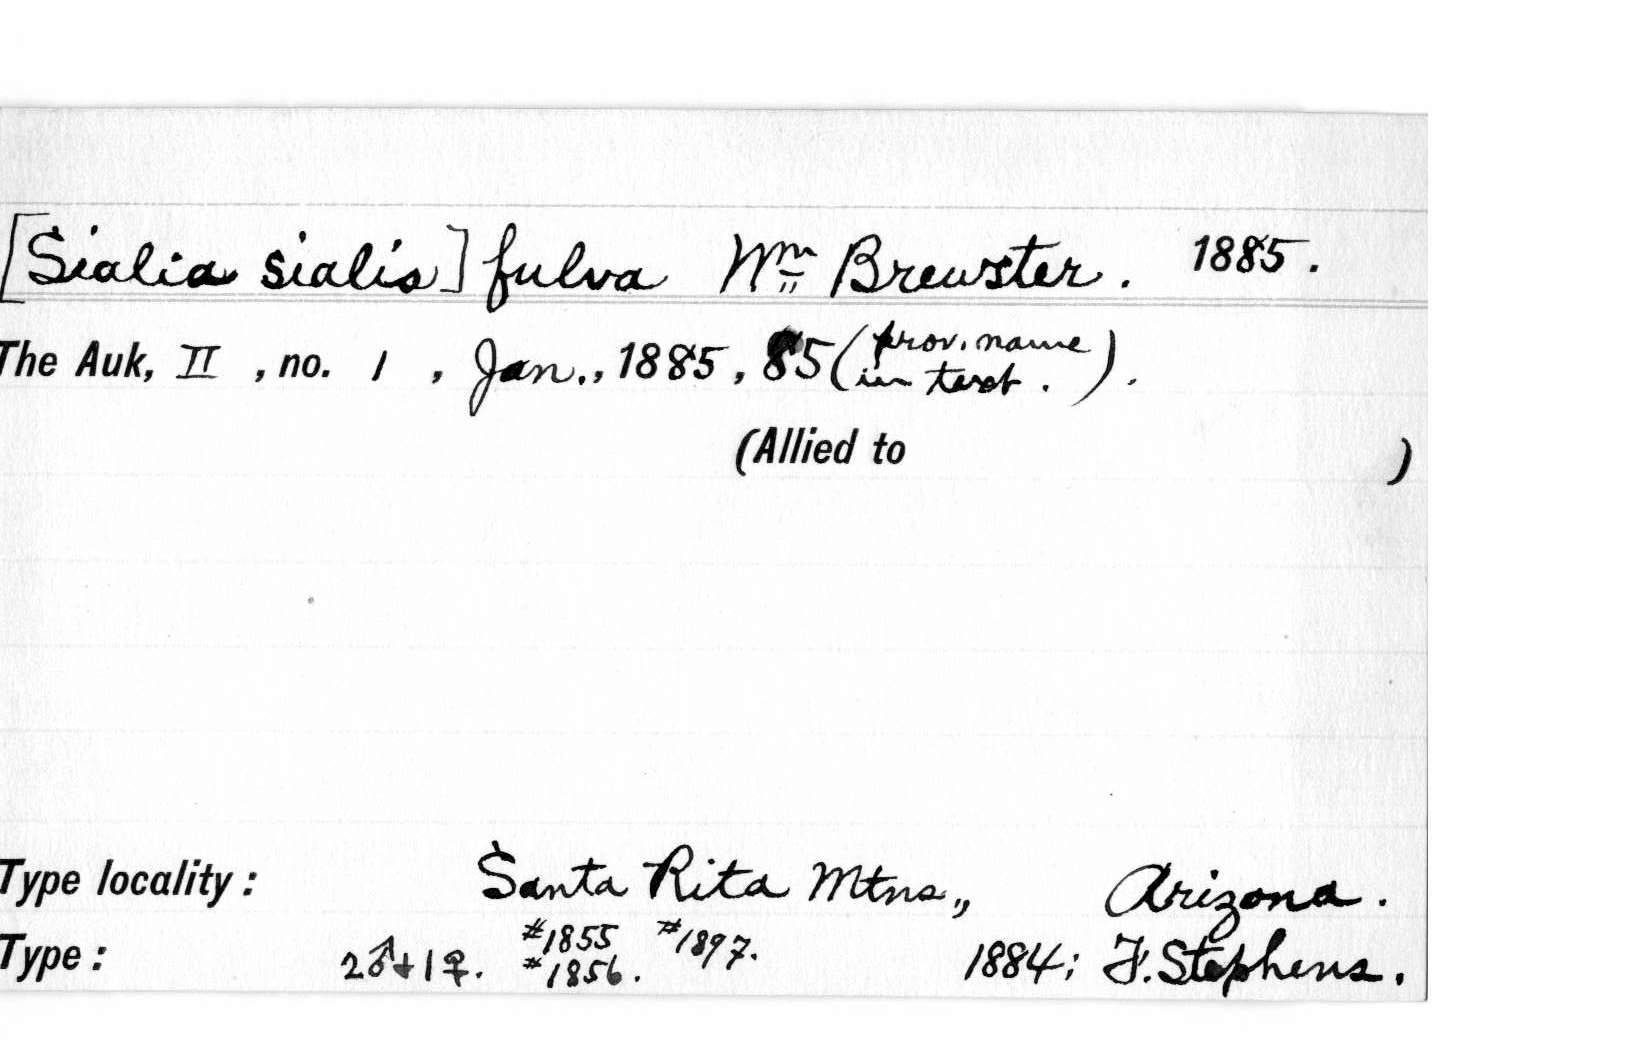 [Sialia sialis] fulva Wm Brewster. 1885.
The Auk, II, no. 1, Jan., 1885, 85 (prov. name in text.).
(Allied to )
Type locality: Santa Rita Mtns., Arizona.
Type: 2♂+1♀. #1855 #1856. #1897. 1884; F. Stephens.